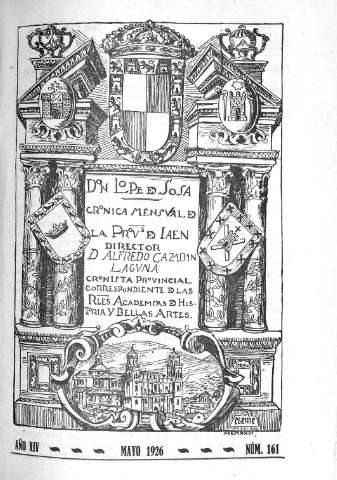 DON LOPE D SOSA
CRONICA MENSVAL D
LA PROVª D IAEN
DIRECTOR
D ALFREDO CAZABAN
LAGUNA
CRONISTA PROVINCIAL
CORRESPONDIENTE D LAS
RLES ACADEMIAS D HIS-
TORIA Y BELLAS ARTES.
AÑO XIV MAYO 1926 NÚM. 161